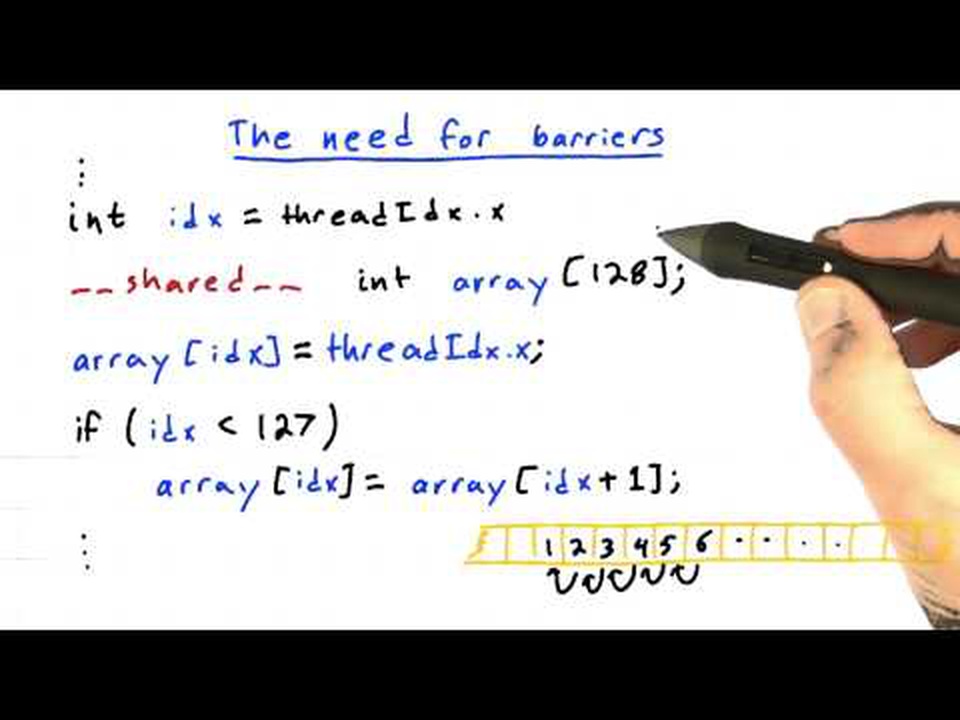 The need for barriers
⋮
int idx = threadIdx.x
__shared__ int array[128];
array[idx] = threadIdx.x;
if (idx < 127)
array[idx] = array[idx+1];
⋮
1 2 3 4 5 6 . . . .